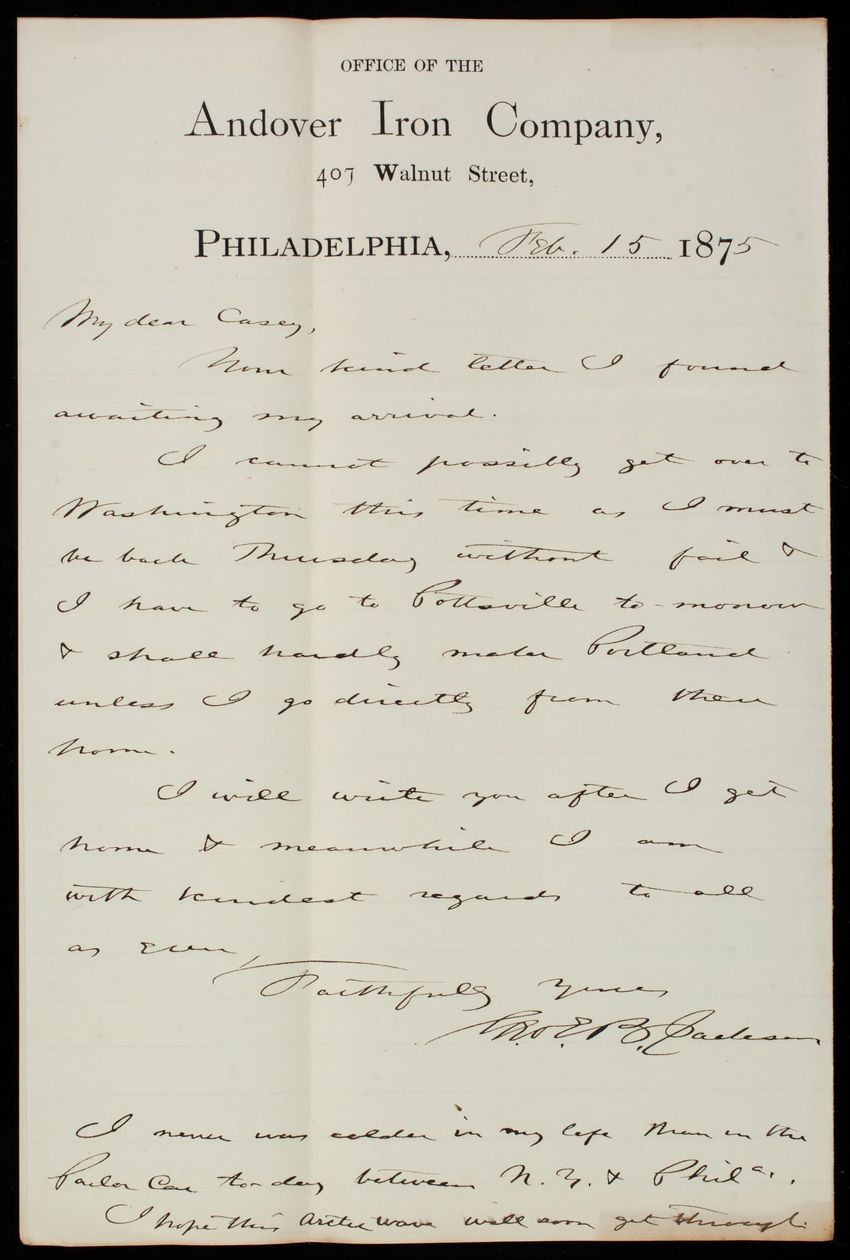 OFFICE OF THE
Andover Iron Company,
407 Walnut Street,
PHILADELPHIA, Feb. 15 1875
My dear Casey,
Your kind letter I found
awaiting my arrival.
I cannot possibly get over to
Washington this time as I must
be back Thursday without fail &
I have to go to Pottsville to-morrow
& shall hardly make Portland
unless I go directly from there
home.
I will write you after I get
home & meanwhile I am
with kindest regards to all
as Ever,
Faithfully Yours
Geo. E. B. Jackson
I never was colder in my life than in the
Parlor Car to-day between N. Y. & Phila.,
I hope this Arctic wave will soon get through